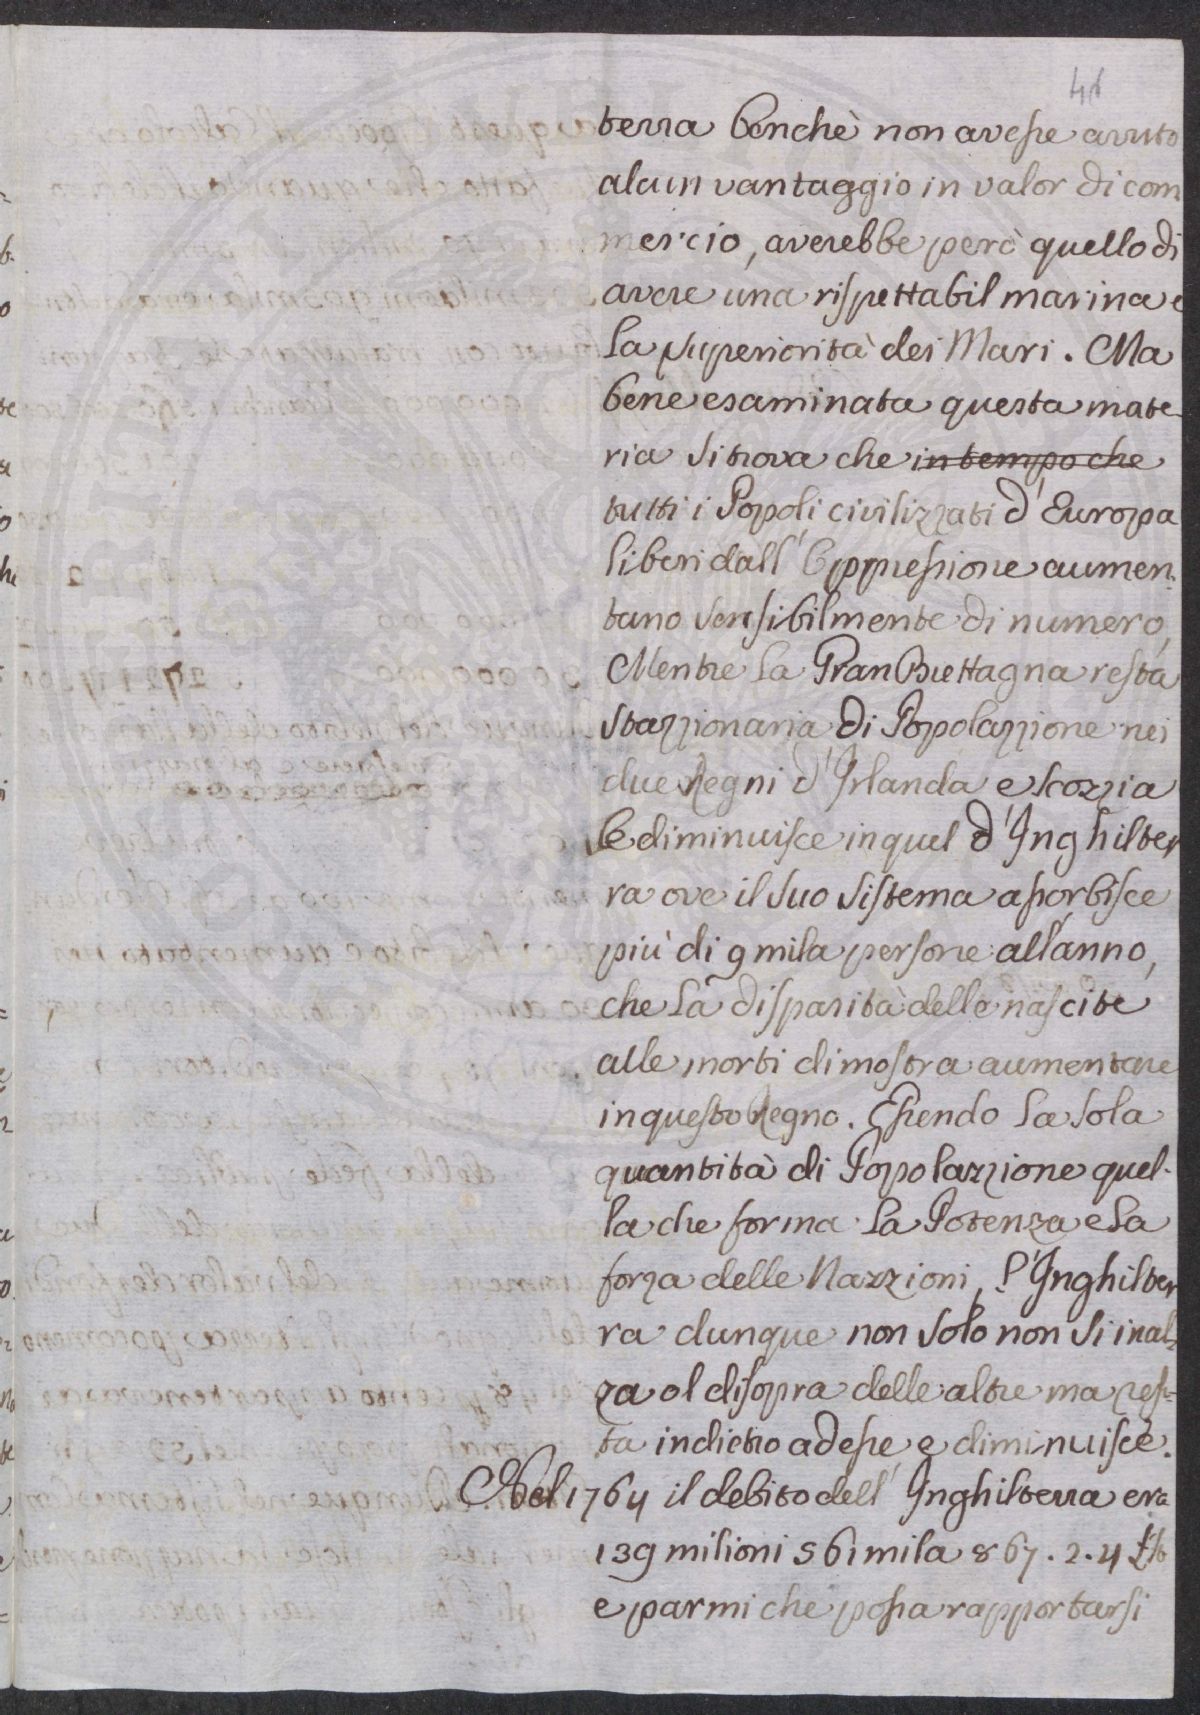 46
terra benchè non avesse avuto
alcun vantaggio in valor di com
mercio, averebbe però quello di
avere una rispettabil marina e
la superiorità dei Mari. Ma
bene esaminata questa mate-
ria si trova che in tempo che
tutti i Popoli civilizzati d'Europa
liberi dall'Oppressione aumen-
tano sensibilmente di numero,
Mentre la Gran Brettagna resta
stazzionaria di Popolazzione nei
due Regni d'Irlanda e Scozzia
e diminuisce in quel d'Inghilter
ra ove il suo sistema assorbisce
più di 9 mila persone all'anno,
che la disparità delle nascite
alle morti dimostra aumentare
in questo Regno. Essendo la sola
quantità di Popolazzione quel-
la che forma la Potenza e la
forza delle Nazzioni, l'Inghilter
ra dunque non solo non si inal-
za al disopra delle altre ma res-
ta indietro ad esse, e diminuisce.
Nel 1764 il debito dell'Inghilterra era
139 milioni 561 mila 867.2.4
e parmi che possa rapportarsi